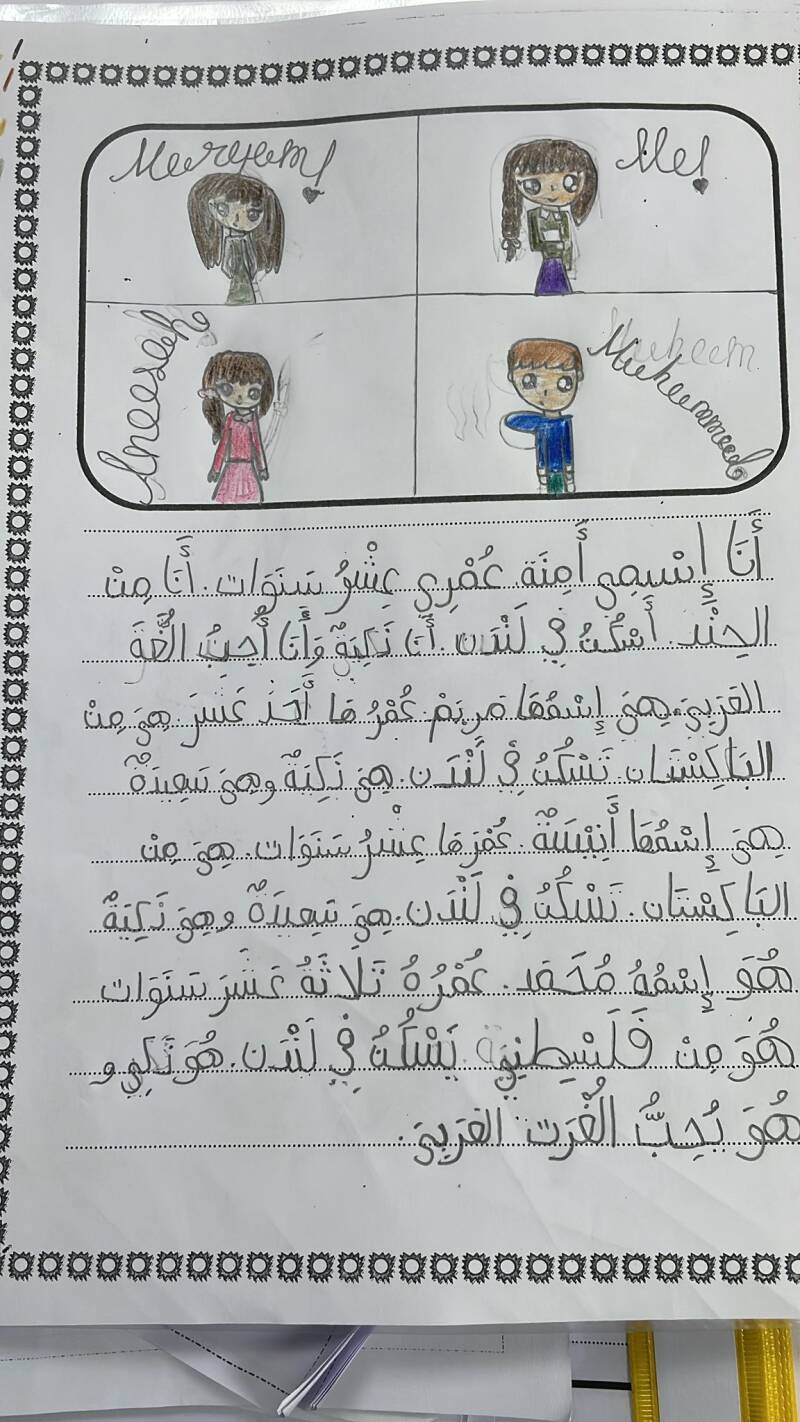 Maryam!
Me!
Aneesah
Muheem
Muhammed
أَنَا إِسْمِي أَمِنَة عُمْرِي عِشْرُ سَنَوَات. أَنَا مِنْ
الحِنْد. أَسْكُنُ فِي لَنْدَن. أَنَا ذَكِيَةٌ وَأَنَا أُحِبُ الُّغَةَ
العَرَبِيَ. هِيَ إِسْمُهَا مَريَمْ عُمْرُهَا أَحَدَ عَسَرَ. هِيَ مِنْ
البَاكِسْتَان. تَسْكُنُ فِي لَنْدَن. هِيَ ذَكِيَةٌ وهِيَ سَعِيدَةٌ
هِيَ إِسْمُهَا أَنِيسَةٌ. عُمْرَهَا عِشْرُ سَنَوَات. هِيَ مِن
البَاكِسْتَان. تَسْكُنُ فِي لَنْدَن. هِيَ سَعِيدَةٌ وهِيَ ذَكِيَةٌ
هُوَ إِسْمُهُ مُحَمَد. عُمْرُهُ ثَلاثَةُ عَشَرَ سَنَوَات
هُوَ مِن فَلَسِطِنِيَة يَسْكُنُ فِي لَنْدَن. هُوَ ذَكِي و
هُوَ يُحِبُّ الُغَرَت العَرَبِيَ.